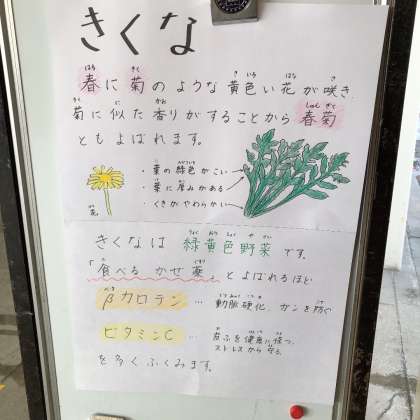 きくな
春に菊のような黄色い花が咲き、
菊に似た香りがすることから春菊
ともよばれます。
・葉の緑色がこい
・葉に厚みがある
・くきがやわらかい
花
きくなは緑黄色野菜です。
「食べるかぜ薬」とよばれるほど
βカロテン … 動脈硬化、ガンを防ぐ
ビタミンC … 皮ふを健康に保つ、
ストレスから守る。
を多くふくみます。